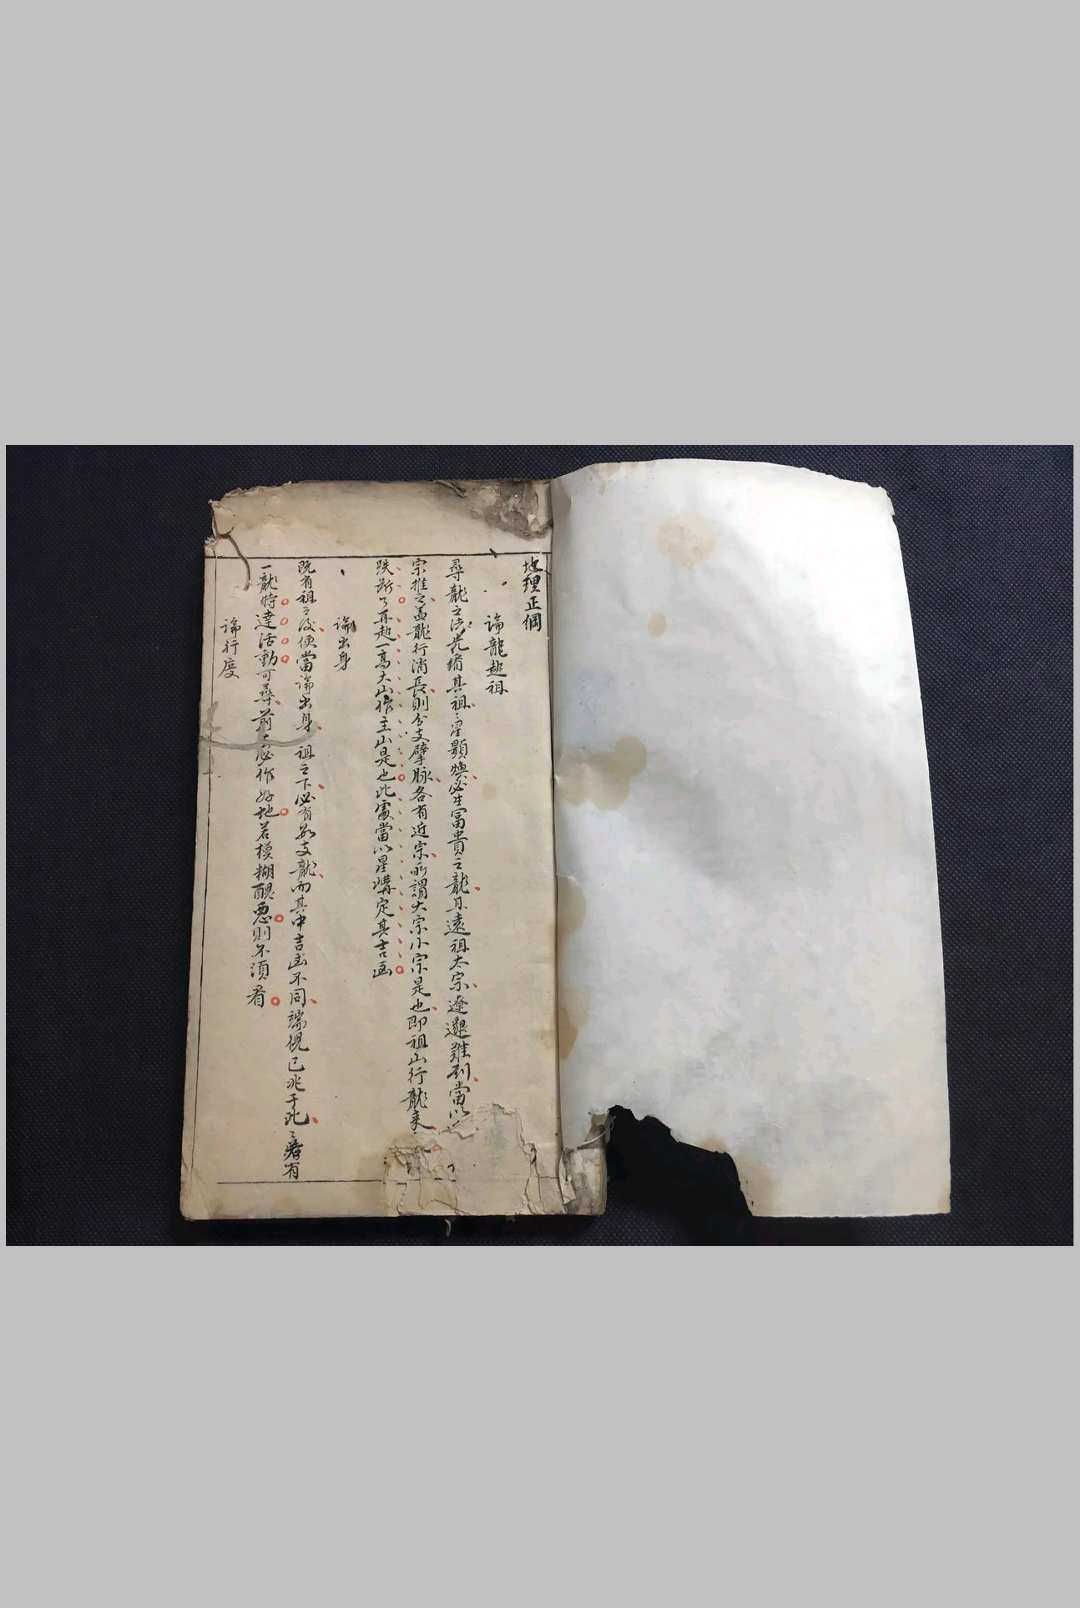 地理正綱
論龍起祖
尋龍之法先看其祖〻星顯煥必生富貴之龍且遠祖太宗遼遠難到當以
宗推之蓋龍行消長則分支擘脉各有近宗所謂大宗小宗是也即祖山行龍來
跌斷了再起一高大山作主山是也此處當以星講定其吉凶
論出身
既有祖〻後便當論出身祖之下必有數支龍而其中吉凶不同端倪已兆于此〻若有
一龍特達活動可尋前去必作好地若模糊醜惡則不須看
論行度